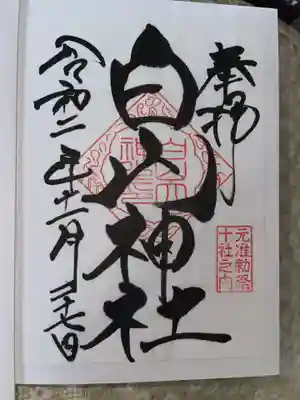 奉拝
白山神社
令和二年十一月二十七日
元准勅祭
十社之内